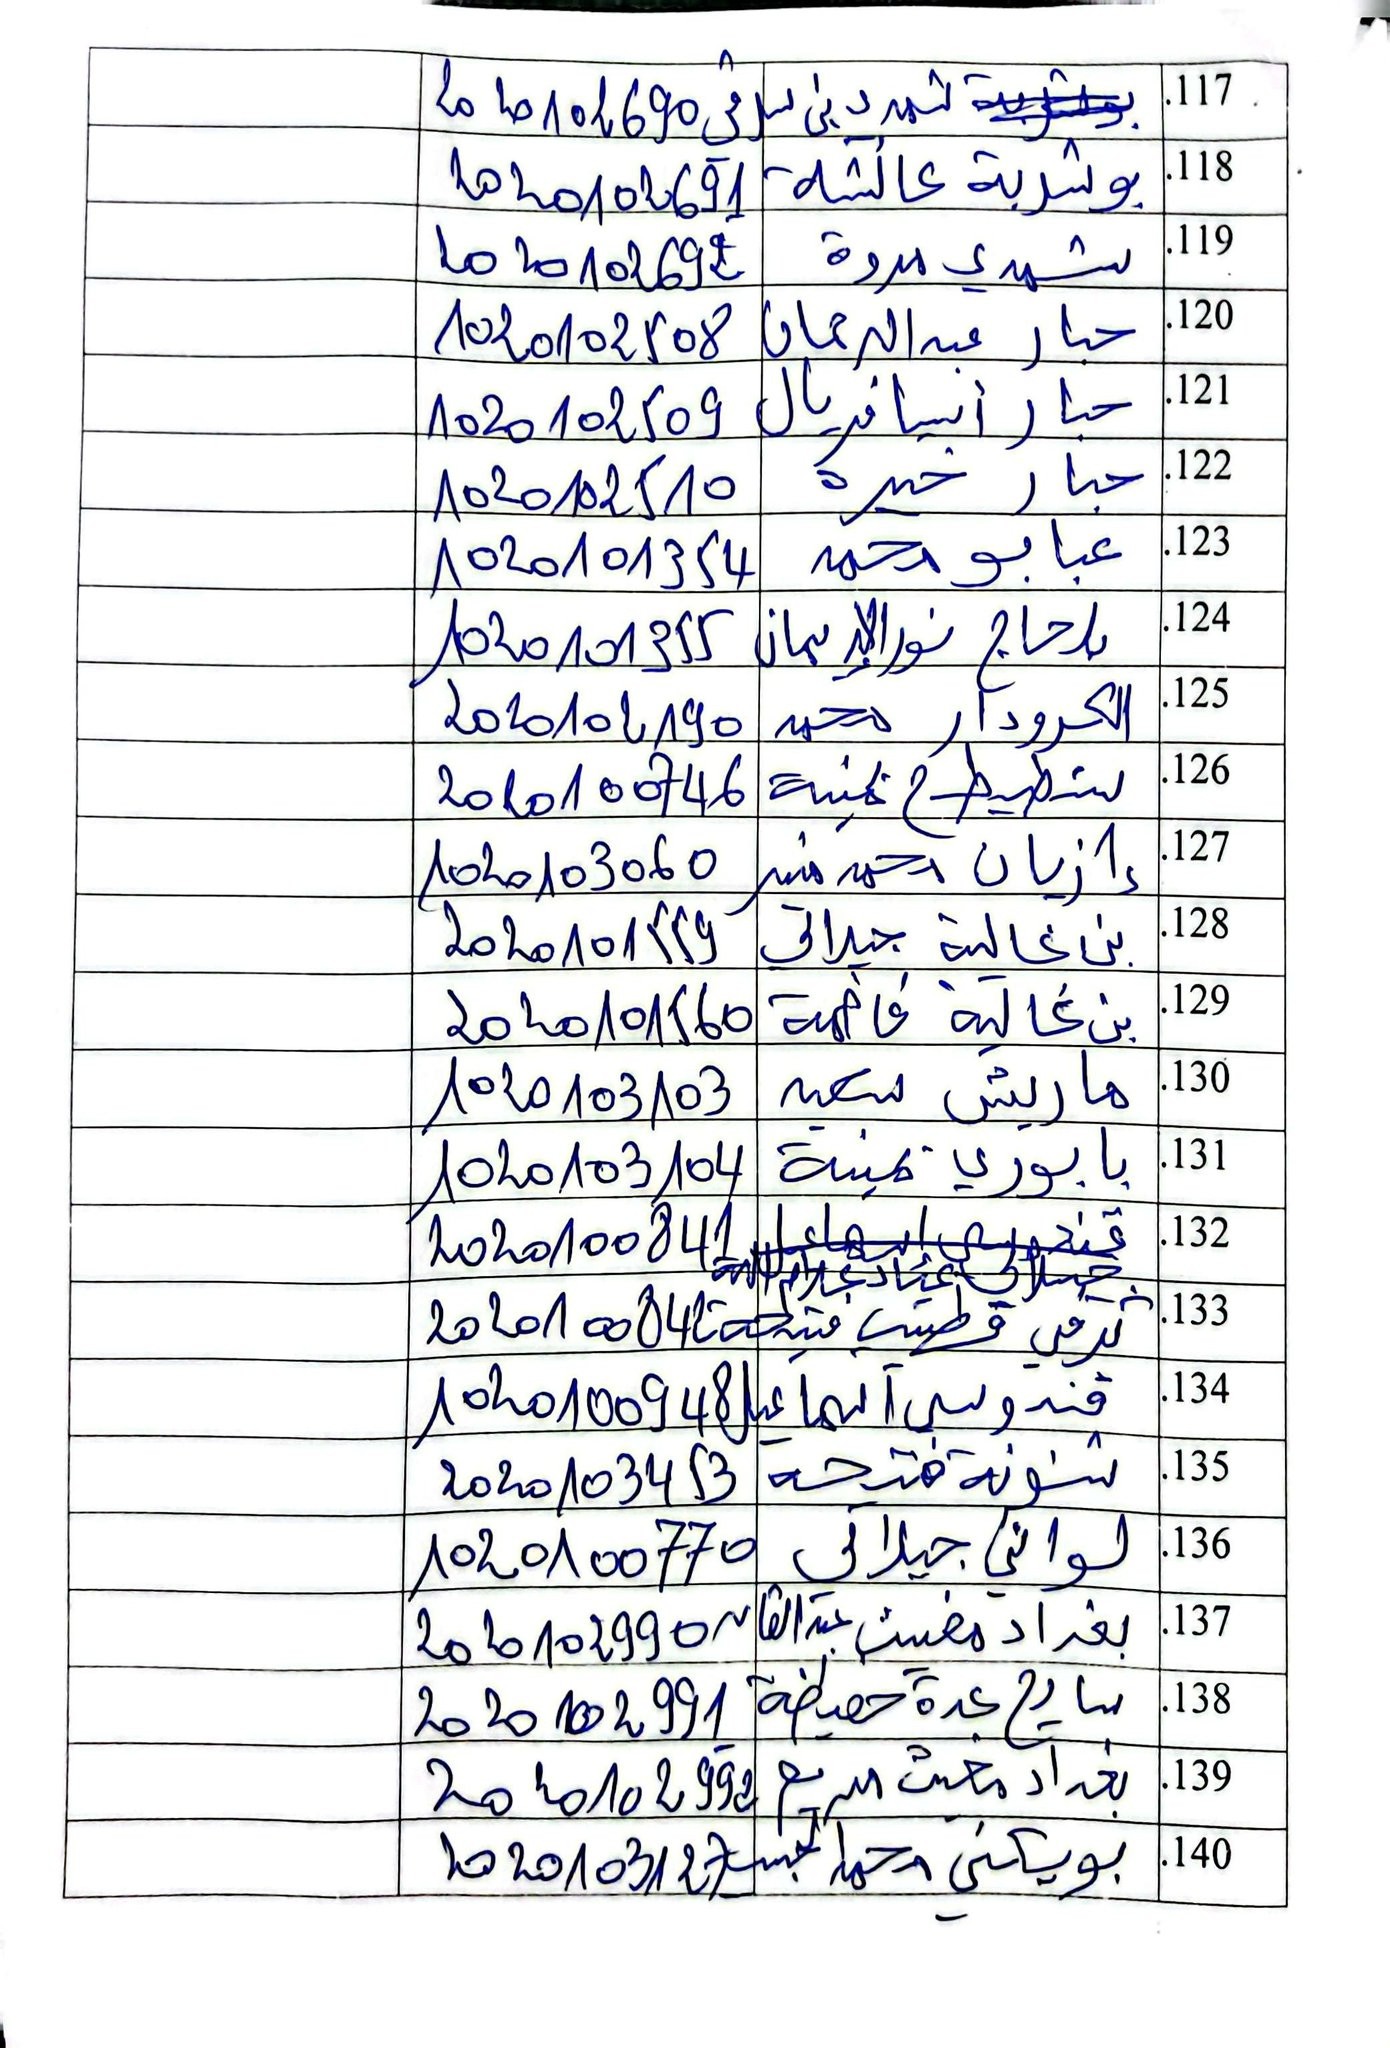 117. شهر دين شرقي 2020102690
118. بوشربة عائشة 2020102691
119. شهدي مروة 2020102692
120. حبار عبد الرحمان 1020102508
121. حبار أنيسا فريال 1020102509
122. حبار خيرة 1020102510
123. عبابو محمد 1020101354
124. بلحاج نور الإيمان 1020101355
125. الكرودار محمد 2020102190
126. شطيطح يمينة 2020100746
127. زيان محمد منير 1020103060
128. بن غالية جيلالي 2020101559
129. بن غالية فاطمة 2020101560
130. ماريش سعيد 1020103103
131. بابوري يمينة 1020103104
132. جيلالي عياد 2020100841
133. تركي فتيحة 2020100842
134. قندوسي اسماعيل 1020100948
135. شنونة فتيحة 2020103453
136. لواتي جيلالي 1020100770
137. بغداد مغيث عبد القادر 2020102990
138. سايح عدة حفيظة 2020102991
139. بغداد مغيث مريم 2020102992
140. بويسكني محمد 2020103127